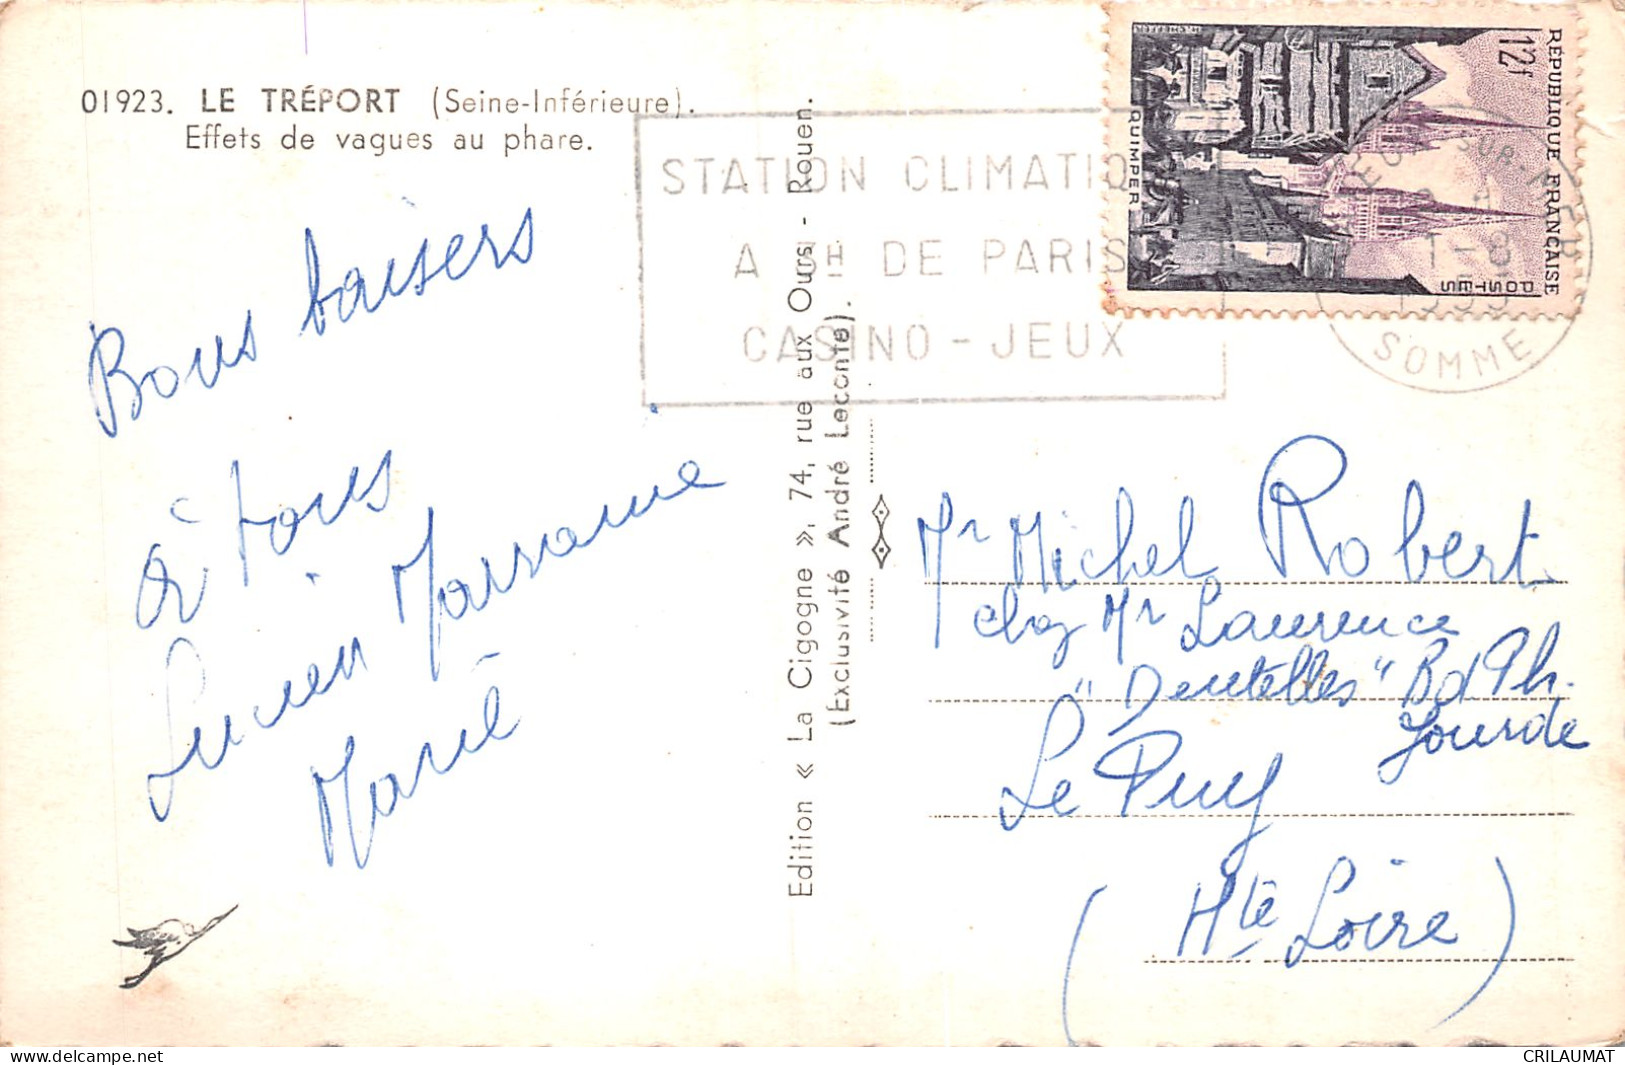 01923. LE TRÉPORT (Seine-Inférieure).
Effets de vagues au phare.
Bons baisers
à tous
Lucien Marranie
Marie
Edition « La Cigogne », 74, rue aux Ours - Rouen.
(Exclusivité André Leconte).
STATION CLIMATIQ
A 3H DE PARIS
CASINO - JEUX
REPUBLIQUE FRANÇAISE
12f
POSTES
QUIMPER
SUR
SOMME
Mr Michel Robert
chez Mr Laurence
"Dentelles" Bd Ph.
Jourde
Le Puy
(Hte Loire)
CRILAUMAT